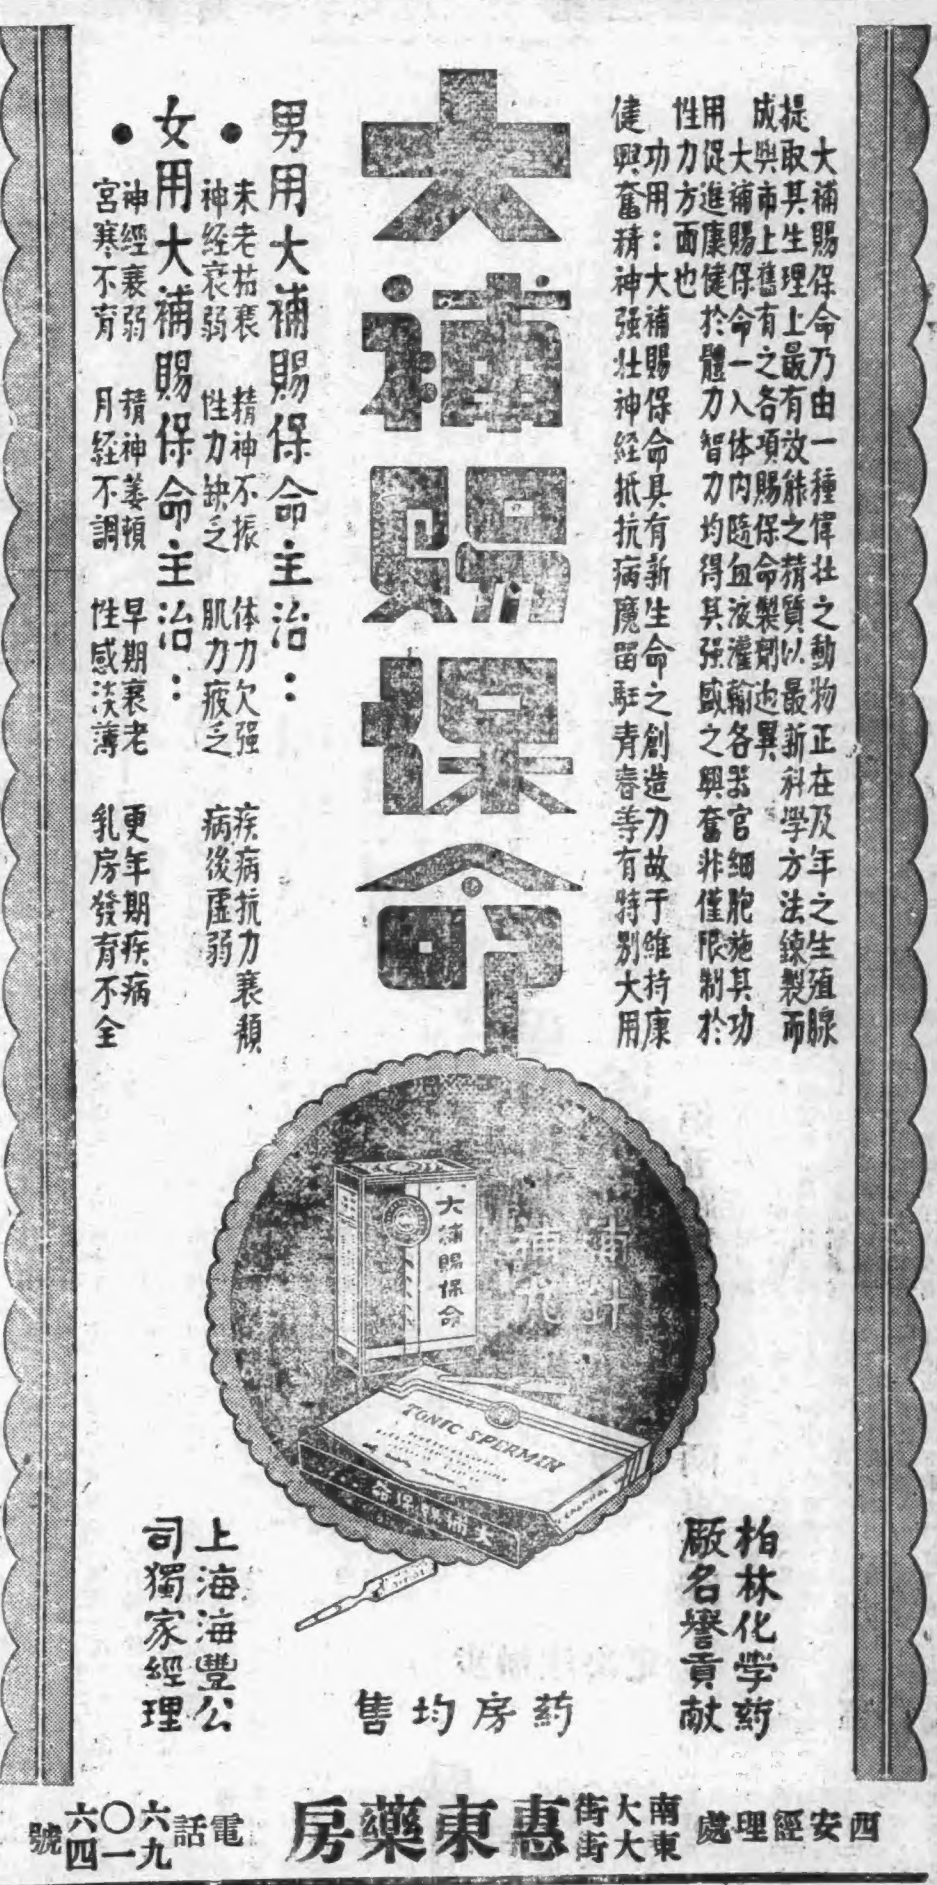 大補賜保命乃由一種偉壯之動物正在及年之生殖腺
提取其生理上最有效能之精質以最新科學方法鍊製而
成與市上舊有之各項賜保命製劑迥異
大補賜保命一入体内隨血液灌輸各器官細胞施其功
用促進康健於體力智力均得其强盛之興奮非僅限制於
性力方面也
功用：大補賜保命具有新生命之創造力故于維持康
健興奮精神强壯神経抵抗病魔留駐青春等有特别大用
大補賜保命
男用大補賜保命主治：
●
未老枯衰 精神不振 体力欠强 疾病抗力衰頽
神経衰弱 性力缺乏 肌力疲乏 病後虛弱
女用大補賜保命主治：
●
神經衰弱 精神萎頓 早期衰老 更年期疾病
宮寒不育 月経不調 性感淡薄 乳房發育不全
補針
補
大補賜保命
TONIC SPERMIN
大補賜保命
柏林化学葯
廠名譽貢献
葯房均售
上海海豐公
司獨家經理
西安經理處
南大街
東大街
惠東藥房
電話
六〇六
九一四
號